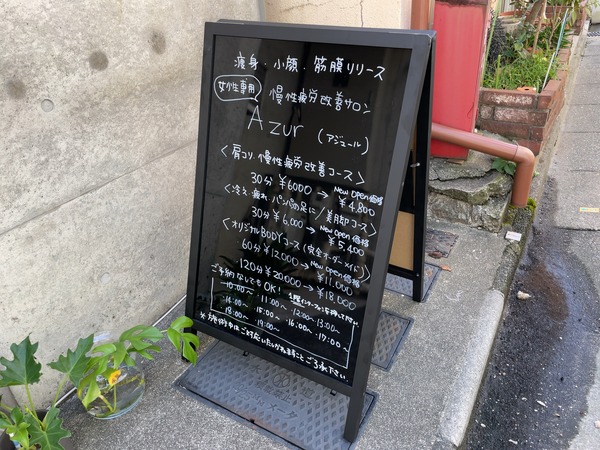 痩身・小顔・筋膜リリース
女性専用
慢性疲労改善サロン
Azur (アジュール)
<肩コリ、慢性疲労改善コース>
30分 ¥6000 → New Open価格 ¥4,800
<冷え・疲れ・パンパンの足に/美脚コース>
30分 ¥6,000 → New Open価格 ¥5,400
<オリジナルBODYコース(完全オーダーメイド)>
60分 ¥12,000 → New Open価格 ¥11,000
120分 ¥20,000 → ¥18,000
ご予約なしでもOK!
・10:00〜 ・11:00〜 ・12:00〜 13:00〜
・14:00〜 ・15:00〜 ・16:00〜 ・17:00〜
・18:00〜 ・19:00〜
※施術中はご対応いたしかねますことご了承下さい